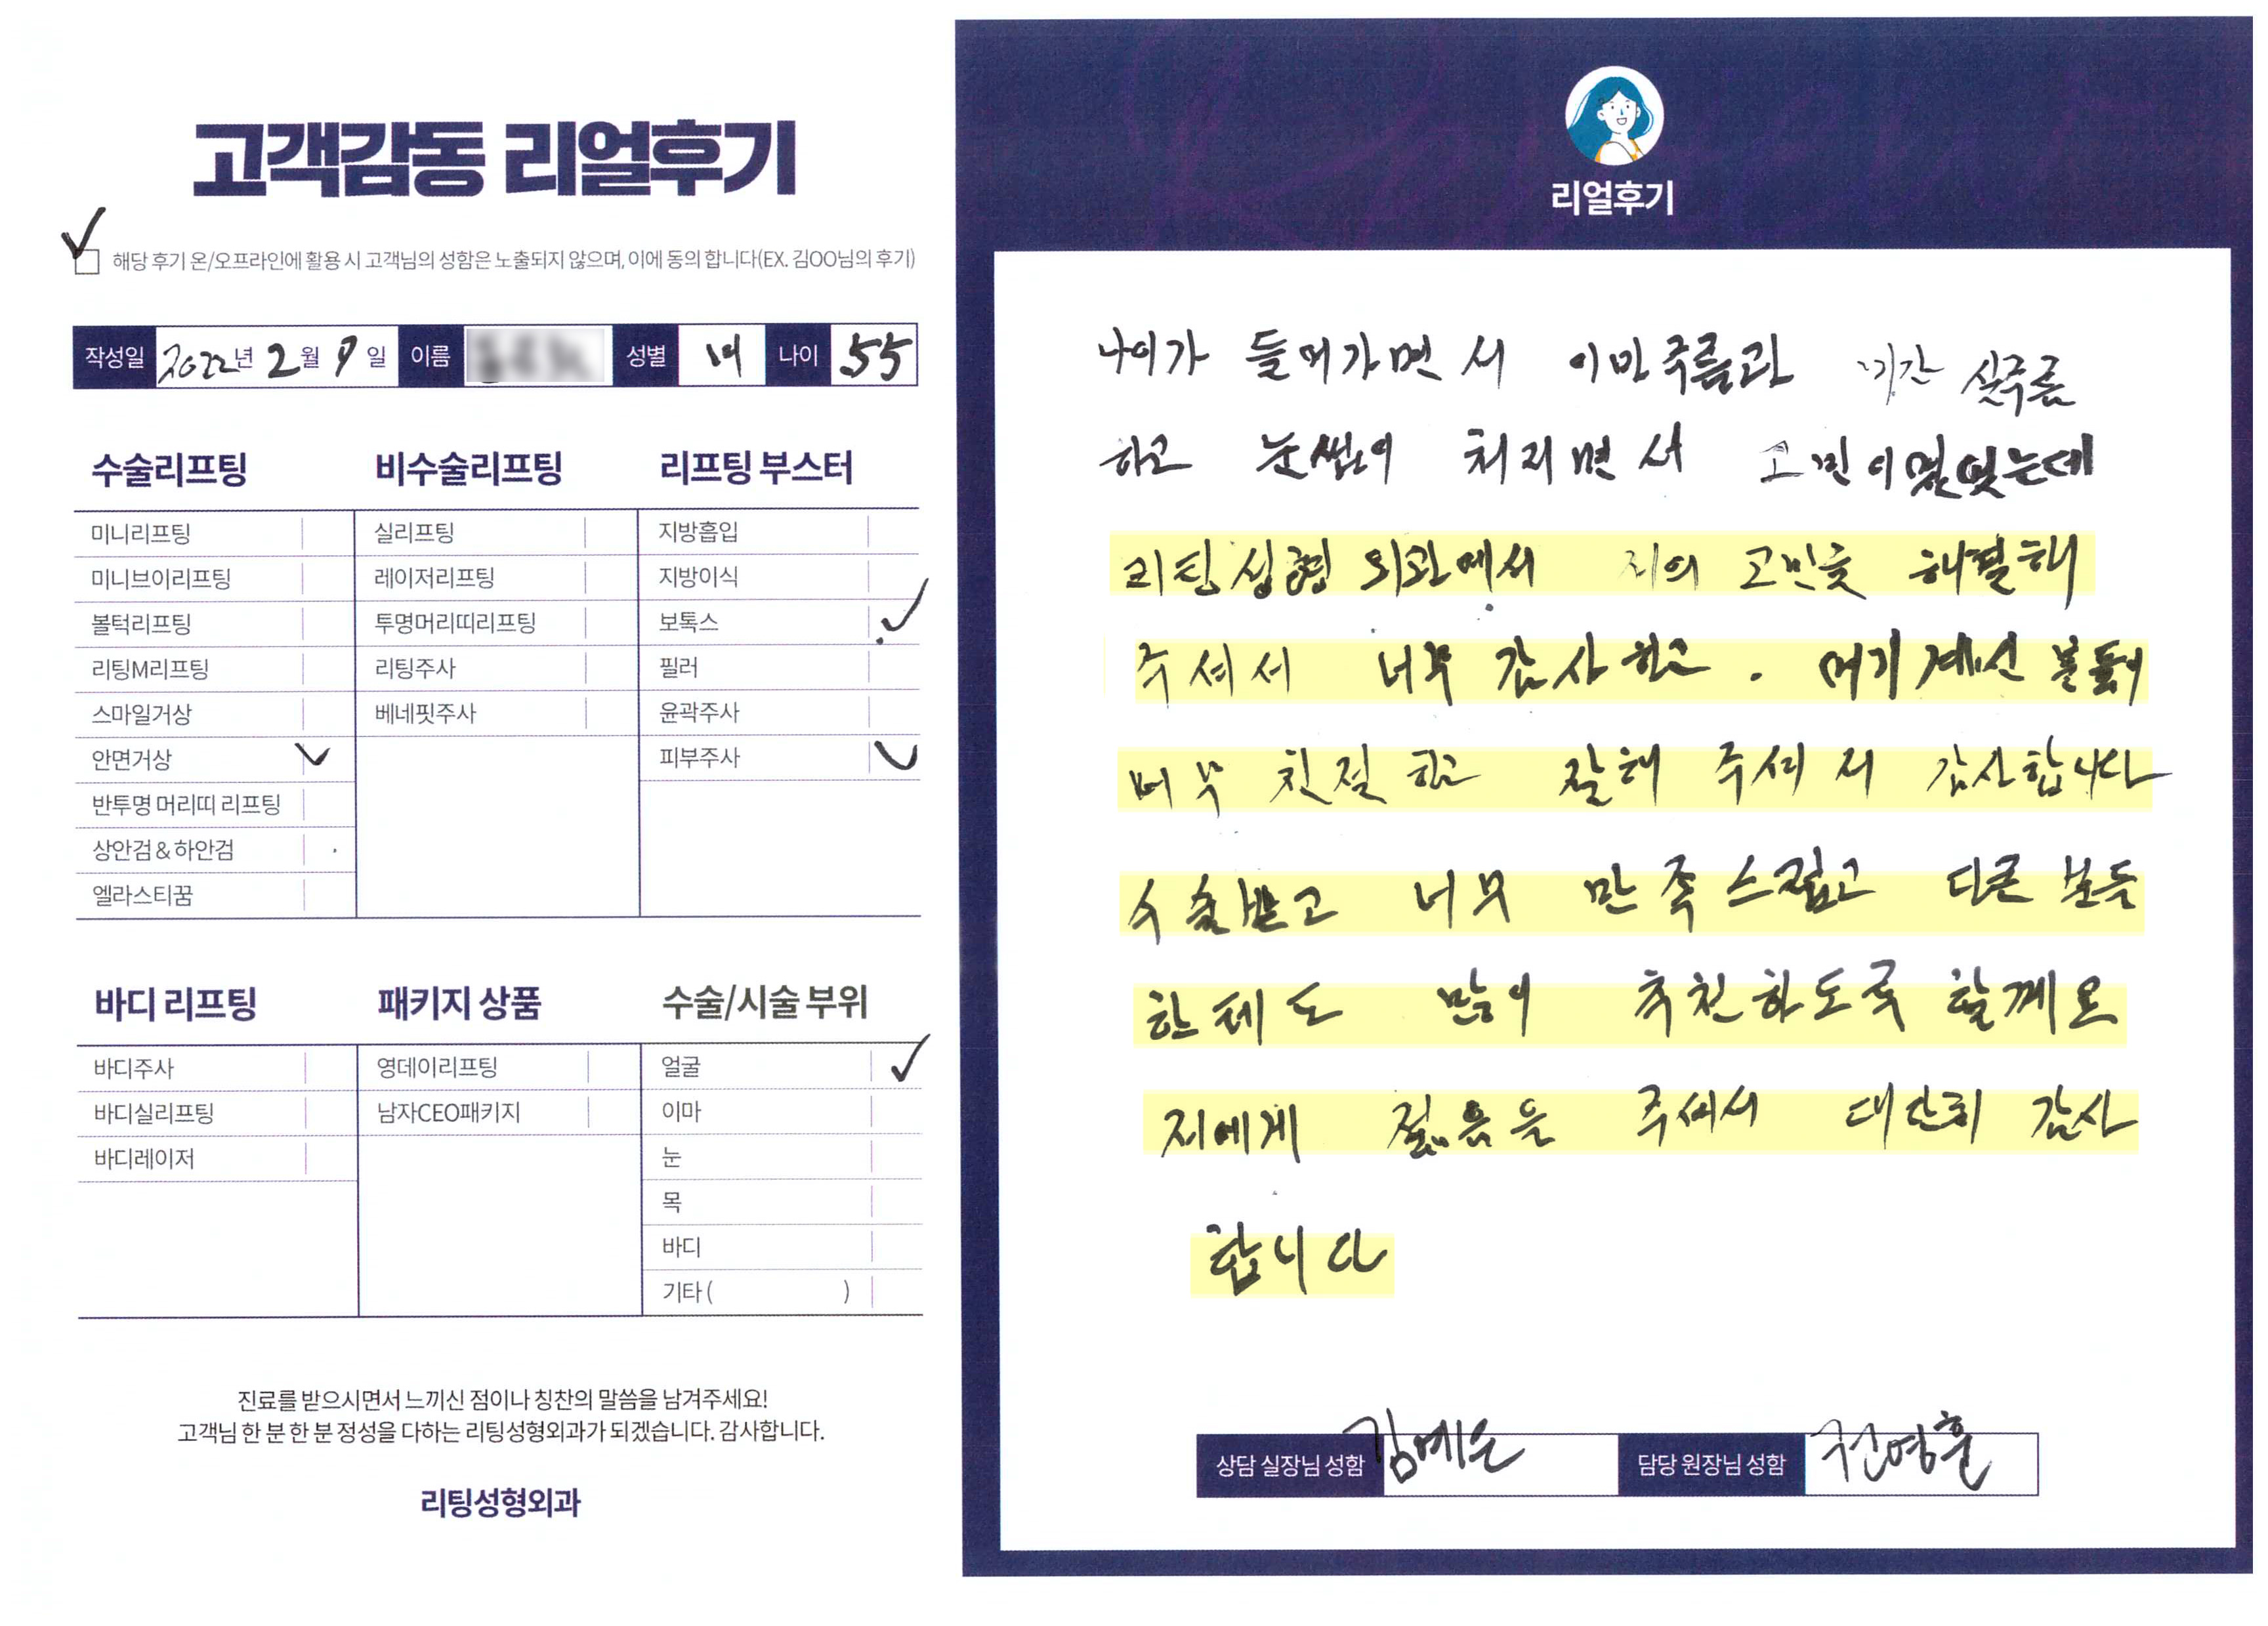 고객감동 리얼후기
해당 후기 온/오프라인에 활용 시 고객님의 성함은 노출되지 않으며, 이에 동의 합니다(EX. 김OO님의 후기)
작성일 2022년 2월 9일 이름 성별 여 나이 55
수술리프팅 비수술리프팅 리프팅 부스터
미니리프팅 실리프팅 지방흡입
미니브이리프팅 레이저리프팅 지방이식
볼턱리프팅 투명머리띠리프팅 보톡스
리팅M리프팅 리팅주사 필러
스마일거상 베네핏주사 윤곽주사
안면거상 피부주사
반투명 머리띠 리프팅
상안검 & 하안검
엘라스티꿈
바디 리프팅 패키지 상품 수술/시술 부위
바디주사 영데이리프팅 얼굴
바디실리프팅 남자CEO패키지 이마
바디레이저 눈
목
바디
기타 ( )
진료를 받으시면서 느끼신 점이나 칭찬의 말씀을 남겨주세요!
고객님 한 분 한 분 정성을 다하는 리팅성형외과가 되겠습니다. 감사합니다.
리팅성형외과
리얼후기
나이가 들어가면서 이마주름과 미간 실주름
하고 눈썹이 처지면서 고민이었는데
리팅성형외과에서 저의 고민을 해결해
주셔서 너무 감사하고. 여기계신 분들이
너무 친절하고 잘해 주셔서 감사합니다
수술받고 너무 만족스럽고 다른 분들
한테도 많이 추천하도록 할께요
저에게 젊음을 주셔서 대단히 감사
합니다
상담 실장님 성함 김예은 담당 원장님 성함 권영훈